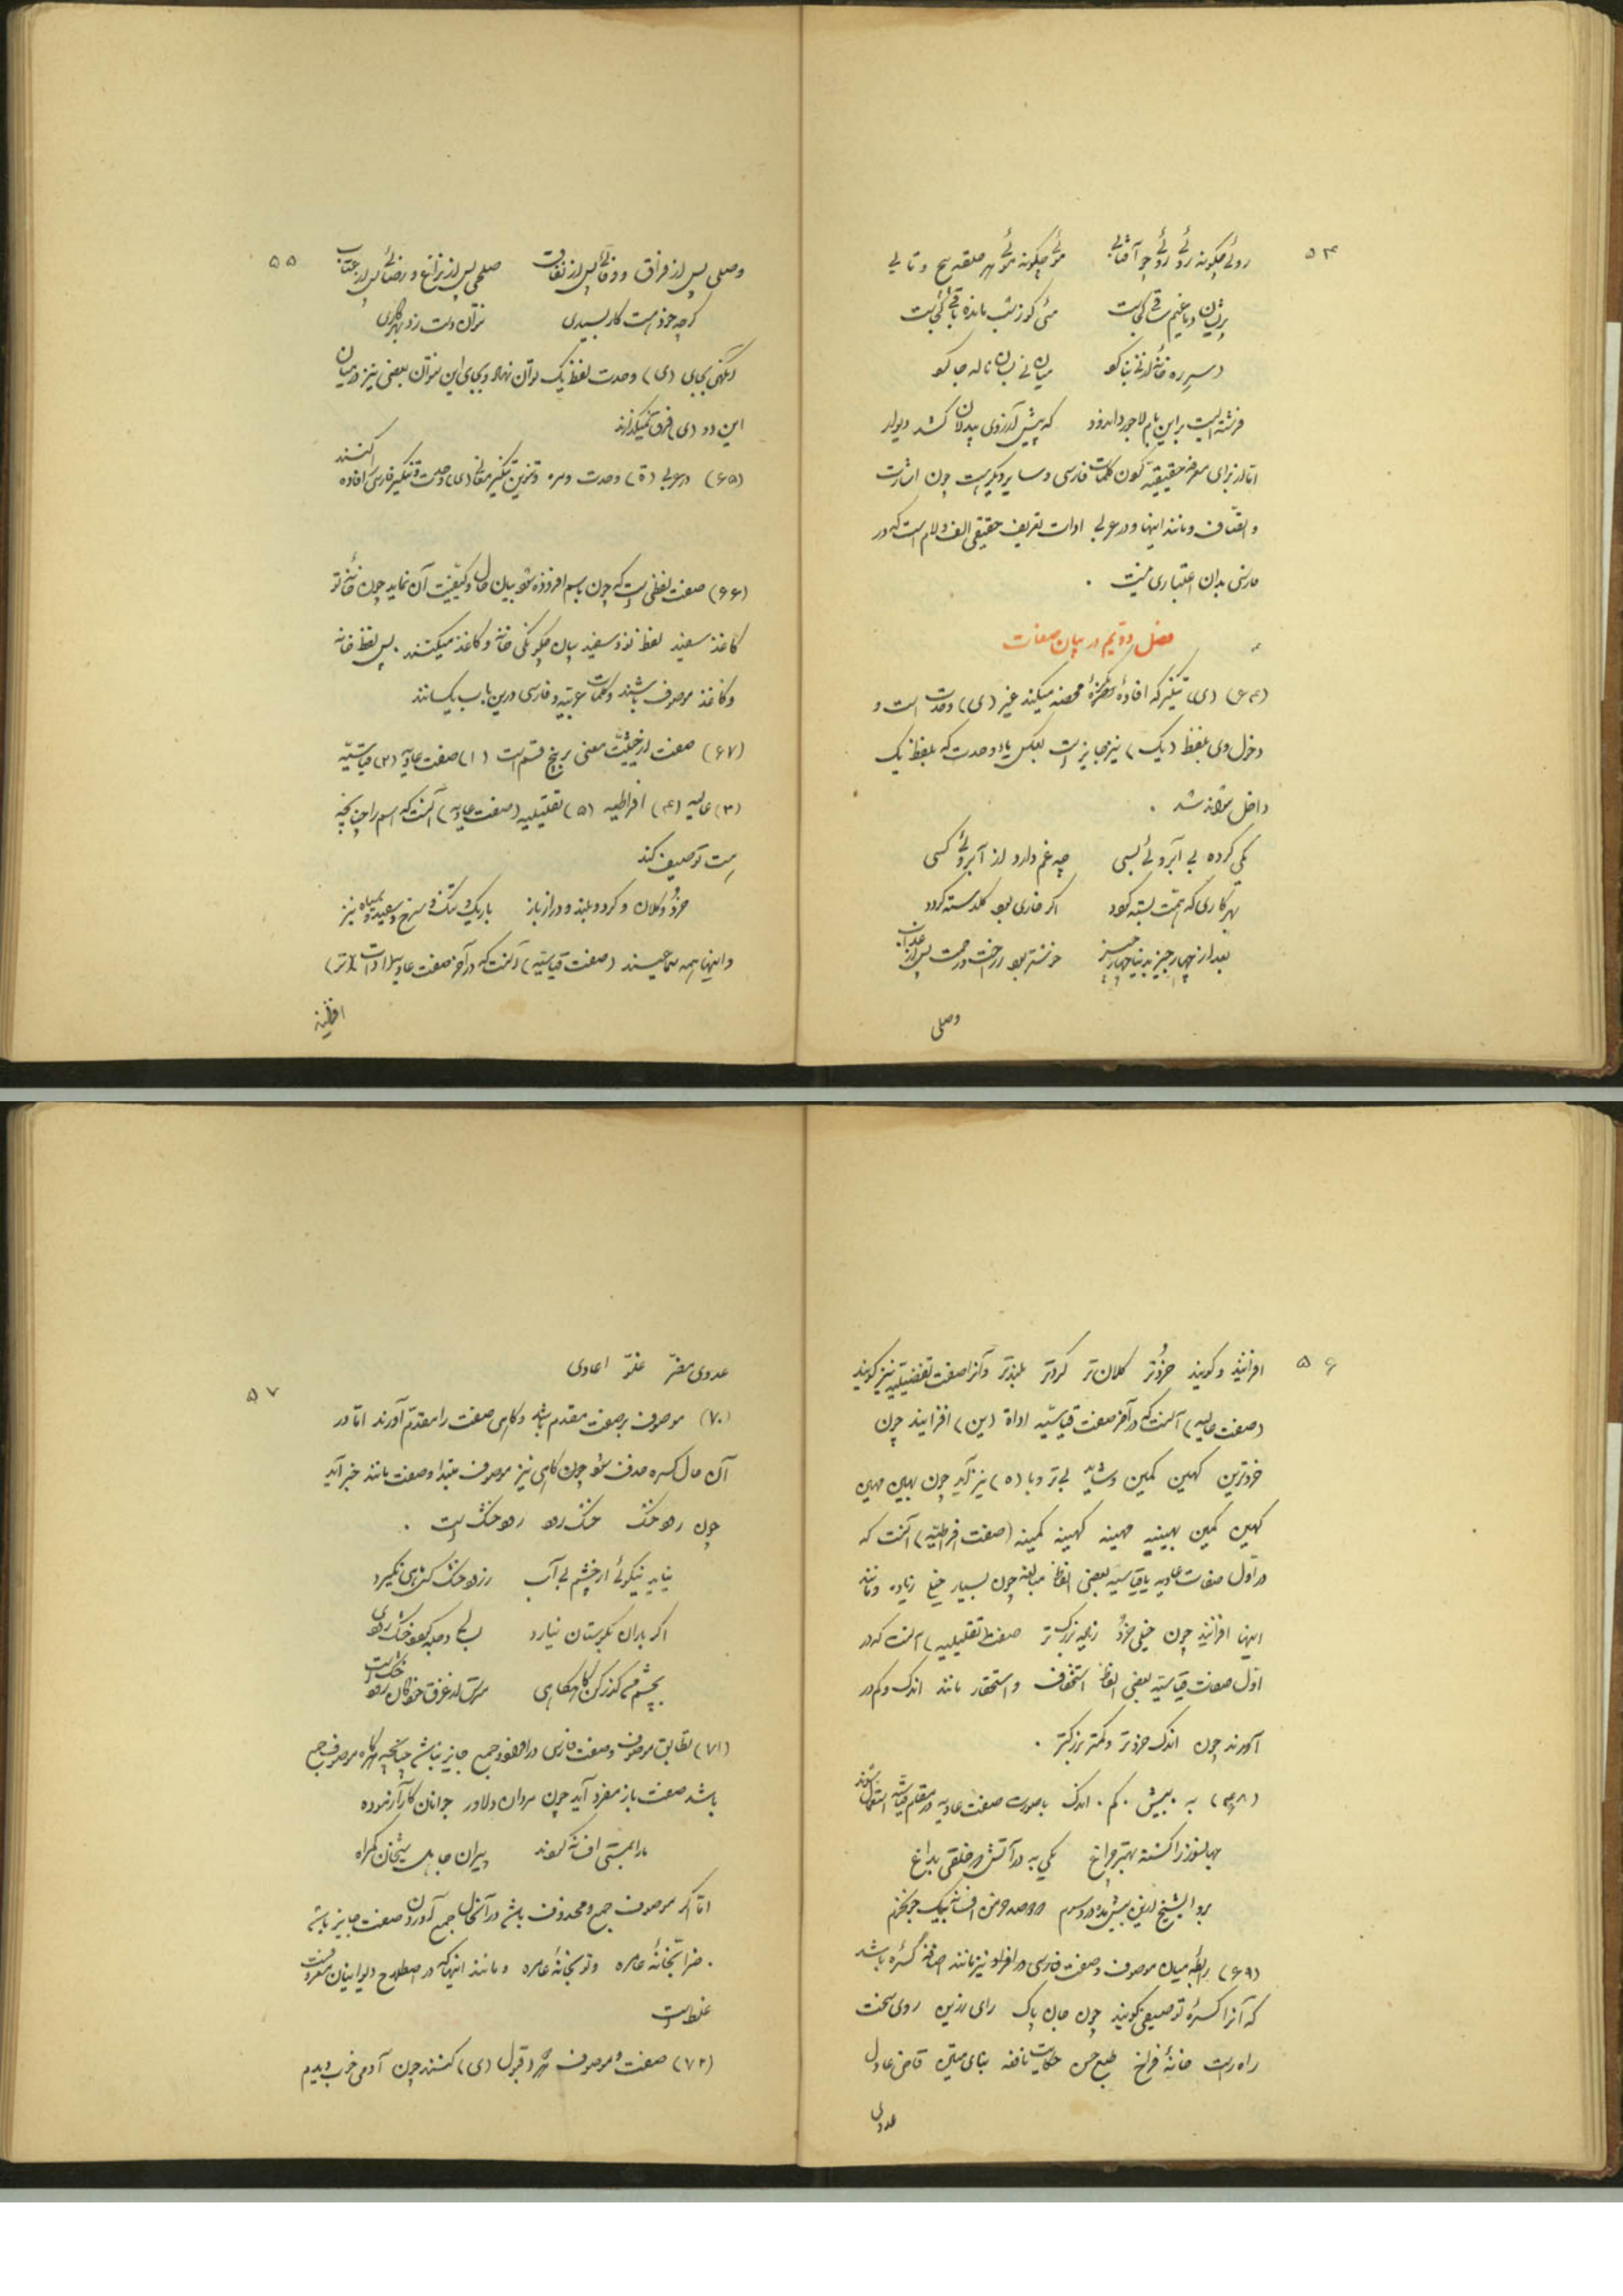 ۵۴
روئے چگونه روئے روئے چو آفتابے موئے چگونه موئے هر حلقه پیچ و تابے
پریشان دماغیم ساقے کجاست مئی کو ز شب مانده باقے کجاست
در سر ره خانه
فرشته ایست بر این بام لاجورد اندود که پیش آرزوی بیدلان کشد دیوار
امّا از برای معرفه حقیقیّه کون کلمات فارسی وسایر دیگر هست چون اشارت
و اتّصاف و مانند اینها و در عربی ادات تعریف حقیقی الف و لام است که در
فارسی بدان اعتباری نیست .
فصل دوّیم در بیان صفات
(۶۴) (ی) تنکیر که افادهٔ نکرهٔ محضه میکند غیر (ی) وحدت است و
دخول وی بلفظ (یک) نیز جایز است بعکس یاء وحدت که بلفظ یک
داخل نتواند شد .
یکی کرده بے آبروئے بسی چه غم دارد از آبروئے کسی
بهر کاری که همّت بسته گردد اگر خاری بود گلدسته گردد
بعد از چهار چیز بدنیا چهار چیز خوشتر بود راحت و رحمت پس از عذاب
وصلی
۵۵
وصلی پس از فراق و وفائے پس از نفاق صلحی پس از نزاع و رضائے پس از عتاب
گر چه خوبست کار بسیدی نتوان دست زد بهر کاری
وگهی بجای (ی) وحدت لفظ یک توان نهاد و بجای این نتوان بعضی نیز در میان
این دو (ی) فرق نمیگذارند
(۶۵) در عربی (ة) وحدت و مره و تنوین تنکیر معانی (ی) وحدت و تنکیر فارسی را افاده کنند
(۶۶) صفت لفظی است که چون باسم افزوده شود بیان حال و کیفیّت آن نماید چون خانهٔ نو
کاغذ سفید لفظ نو و سفید بیان چگونگی خانه و کاغذ میکنند . پس لفظ خانه
و کاغذ موصوف باشند و کلمات عربیّه و فارسی درین باب یکسانند
(۶۷) صفت از حیثیّت معنی بر پنج قسم است (۱) صفت عادیّه (۲) قیاسیّه
(۳) عالیه (۴) افراطیه (۵) تقلیلیه (صفت عادیه) آنست که اسم را چنانچه
هست توصیف کند
خورد و کلان و گرد و بلند و دراز باز باریک و تنگ و سرخ و سفید و سیاه نیز
و اینها همه سماعیند (صفت قیاسیّه) آنست که در آخر صفت عادیه ادات (تر)
افزایند
۵۶
افزایند و گویند خوردتر کلان تر گردتر بلندتر و آنرا صفت تفضیلیّه نیز گویند
(صفت عالیه) آنست که در آخر صفت قیاسیّه اداة (ین) افزایند چون
خوردترین کهین کمین و شاید بے تر و با (ه) نیز آید چون بهین مهین
کهین کمین بهینه مهینه کهینه کمینه (صفت افراطیّه) آنست که
در اوّل صفات عادیه یا قیاسیّه بعضی الفاظ مبالغه چون بسیار خیلی زیاده و مانند
اینها افزایند چون خیلی خورد زیاده بزرگ تر صفت تقلیلیه) آنست که در
اوّل صفات قیاسیّه بعضی الفاظ استخفاف و استحقار مانند اندک و کم در
آورند چون اندک خوردتر و کمتر بزرگتر .
(۶۸) به . بیش . کم . اندک با صورت صفت عادیه در مقام قیاسیّه استعمال شوند
جهانسوز را کشته بهتر چراغ یکی به در آتش که خلقی بداغ
برو ای شیخ ازین بیش مده دردسرم که دو صد خرمن افسانه بیک جو نخرم
(۶۹) رابطه میان موصوف و صفت فارسی در افراد نیز مانند اضافه کسره باشد
که آنرا کسرهٔ توصیفی گویند چون جان پاک رای رزین روی سخت
راه راست خانهٔ فراخ طبع حسن حکایت نافعه بنای متین قاضی عادل
عدوی
۵۷
عدوی مضرّ علوّ اعادی
(۷۰) موصوف بر صفت مقدم باشد و گاهی صفت را مقدّم آورند امّا در
آن حال کسره حذف شود چون گاهی نیز موصوف مبتدا و صفت مانند خبر آید
چون رود خشک خشک رود رود خشک است .
نیاید نیکوئے از چشم بے آب ز رود خشک کس ماهی نگیرد
اگر باران بکوهستان نبارد بسالی دجله گردد خشک رودی
بچشمم گذر کن گاهگاهی
(۷۱) تطابق موصوف و صفت فارسی در افراد و جمع جایز نباشد چنانچه هرگاه موصوف جمع
باشد صفت باز مفرد آید چون مردان دلاور جوانان کار آزموده
ما را بمستی افسانه کردند پیران جاهل شیخان گمراه
امّا اگر موصوف جمع و محذوف باشد در آنحال جمع آوردن صفت جایز باشد
. خزانهٔ عامره و توپخانهٔ عامره و مانند اینها که در اصطلاح دیوانیان معروفست
غلط است
(۷۲) صفت و موصوف هر دو قبول (ی) کنند چون آدمی خوب دیدم